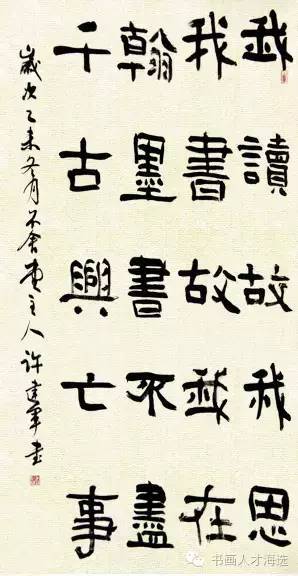 我讀故我思
我書故我在
翰墨書不盡
千古興亡事
歲次乙未冬月不舍主人许建軍書
书画人才海选